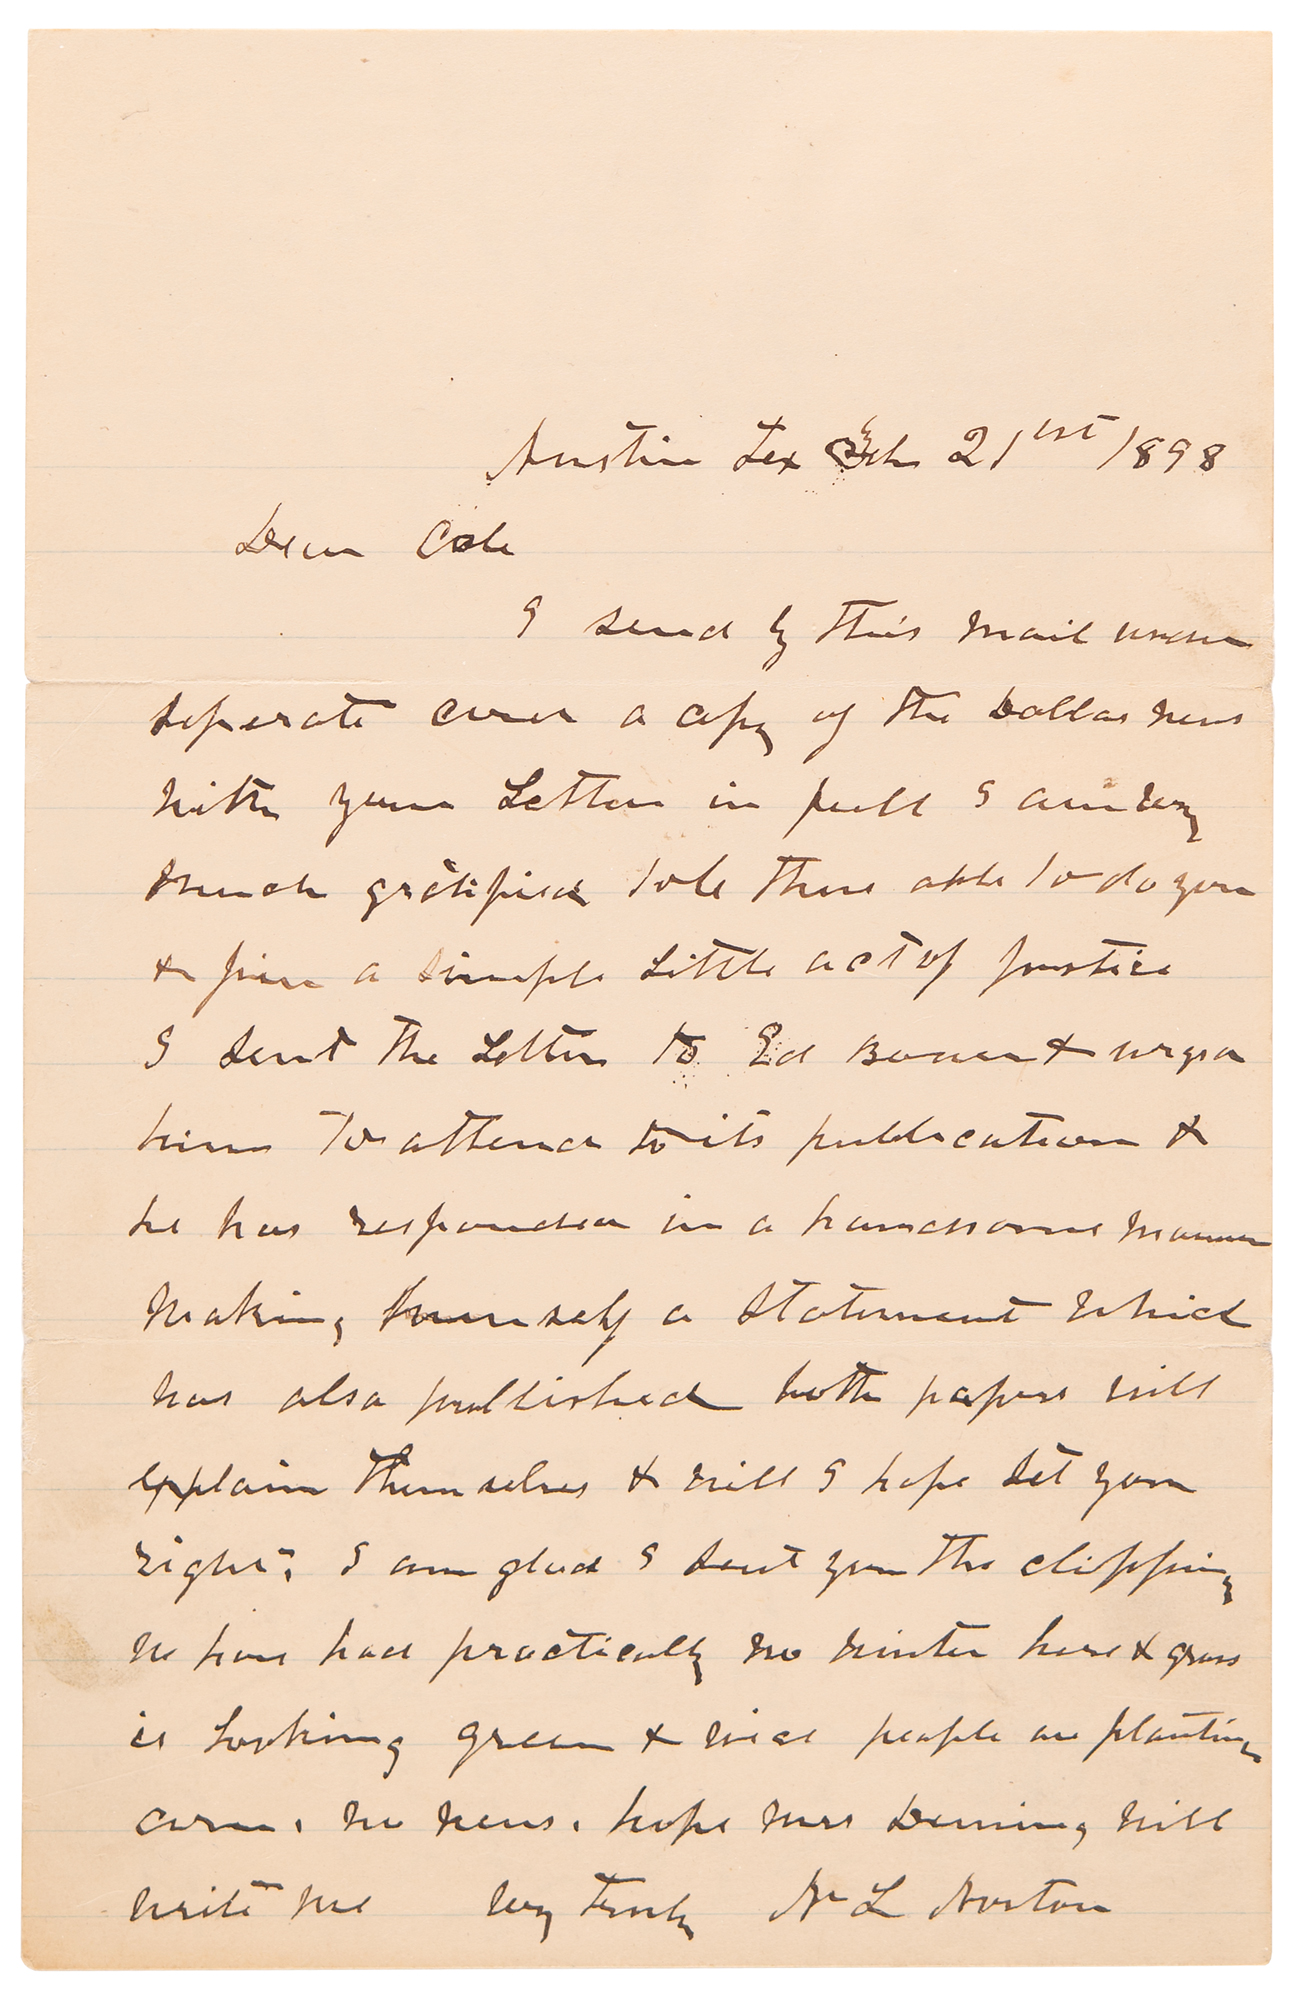 Austin Tex Feb 21st 1898
Dear Cole
I send by this mail under
seperate cover a copy of the Dallas News
with your Letter in full I am very
much gratified to be thus able to do you
& him a simple Little act of justice
I sent the Letter to Ed Bower & urged
him to attend to its publication &
he has responded in a handsome manner
making himself a statement which
has also published both papers will
explain themselves & will I hope set you
right. I am glad I sent you the clipping
We have had practically no winter here & grass
is Looking green & nice people are planting
corn. no news. hope Mrs Deming will
write me very truly N L Norton